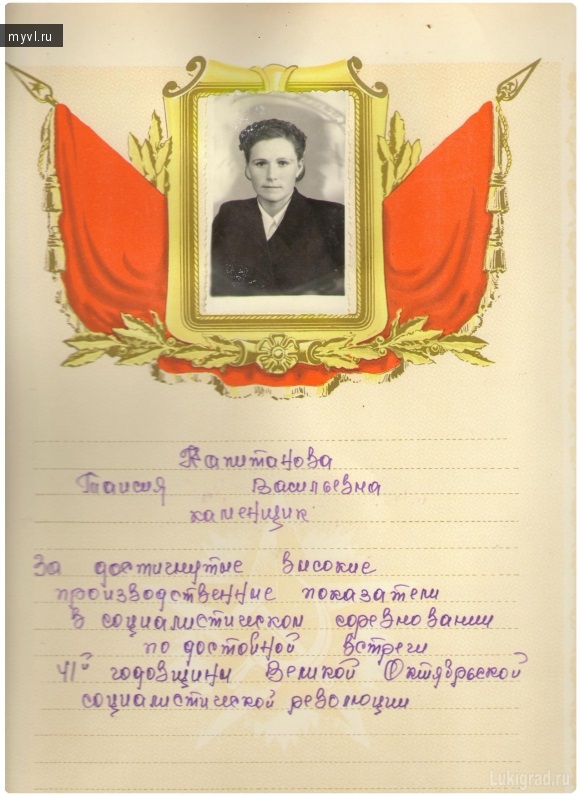 myvl.ru
Капитанова
Таисия Васильевна
каменщик
За достигнутые высокие
производственные показатели
в социалистическом соревновании
по достойной встречи
41й годовщини Великой Октябрьской
социалистической революции
Lukigrad.ru